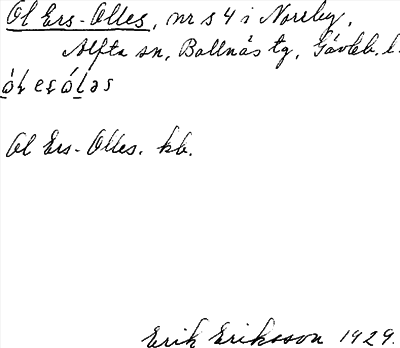 Ol Ers-Olles, nr s 4 i Norrby,
Alfta sn, Bollnäs tg, Gävleb. l.
Ol Ers-Olles. kb.
Erik Eriksson 1929.